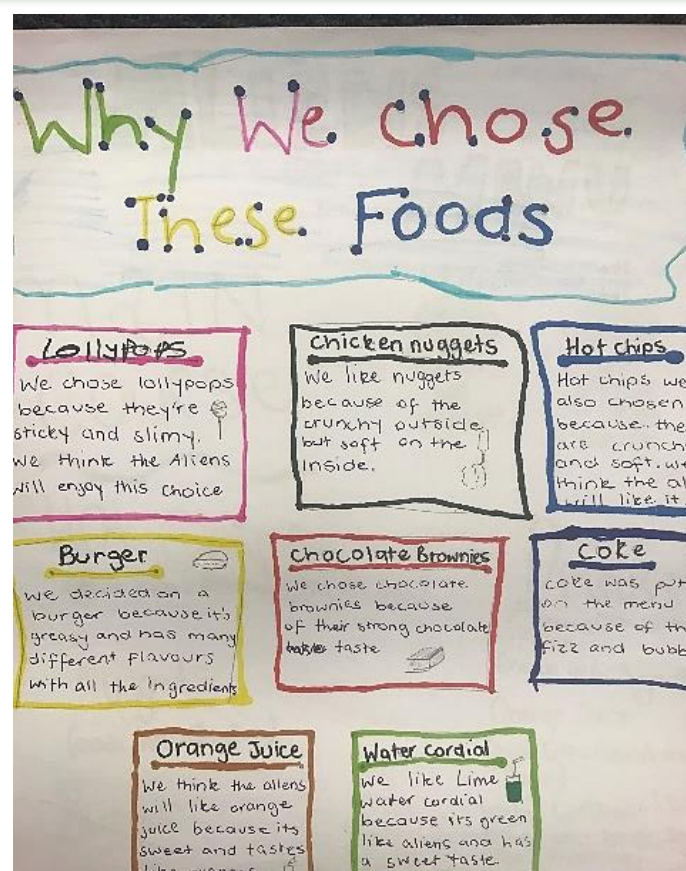 Why We chose
These Foods
Lollypops
We chose lollypops
because they're
sticky and slimy.
We think the Aliens
will enjoy this choice
Chicken nuggets
We like nuggets
because of the
crunchy outside
but soft on the
inside.
Hot chips
Hot chips we
also chosen
because the
are crunch
and soft. we
think the al
will like it.
Burger
We decided on a
burger because it's
greasy and has many
different flavours
with all the ingredients
Chocolate Brownies
We chose chocolate
brownies because
of their strong chocolate
taste
Coke
coke was put
on the menu
because of th
fizz and bubb
Orange Juice
We think the aliens
will like orange
juice because its
sweet and tastes
Water cordial
We like Lime
water cordial
because its green
like aliens and has
a sweet taste.